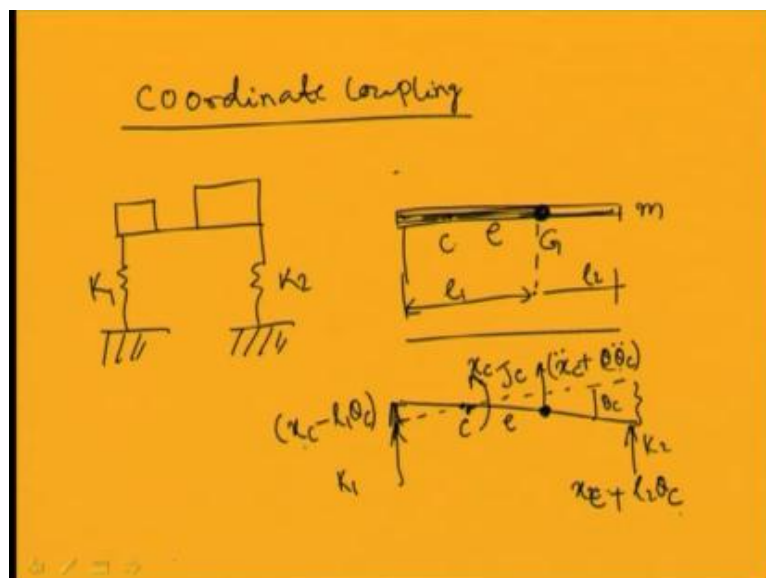 Coordinate Coupling
K1
K2
m
C e G
l1
l2
xc Jc (ẍc + eθ̈c)
(xc - l1θc)
c e
θc
K1
K2
xc + l2θc